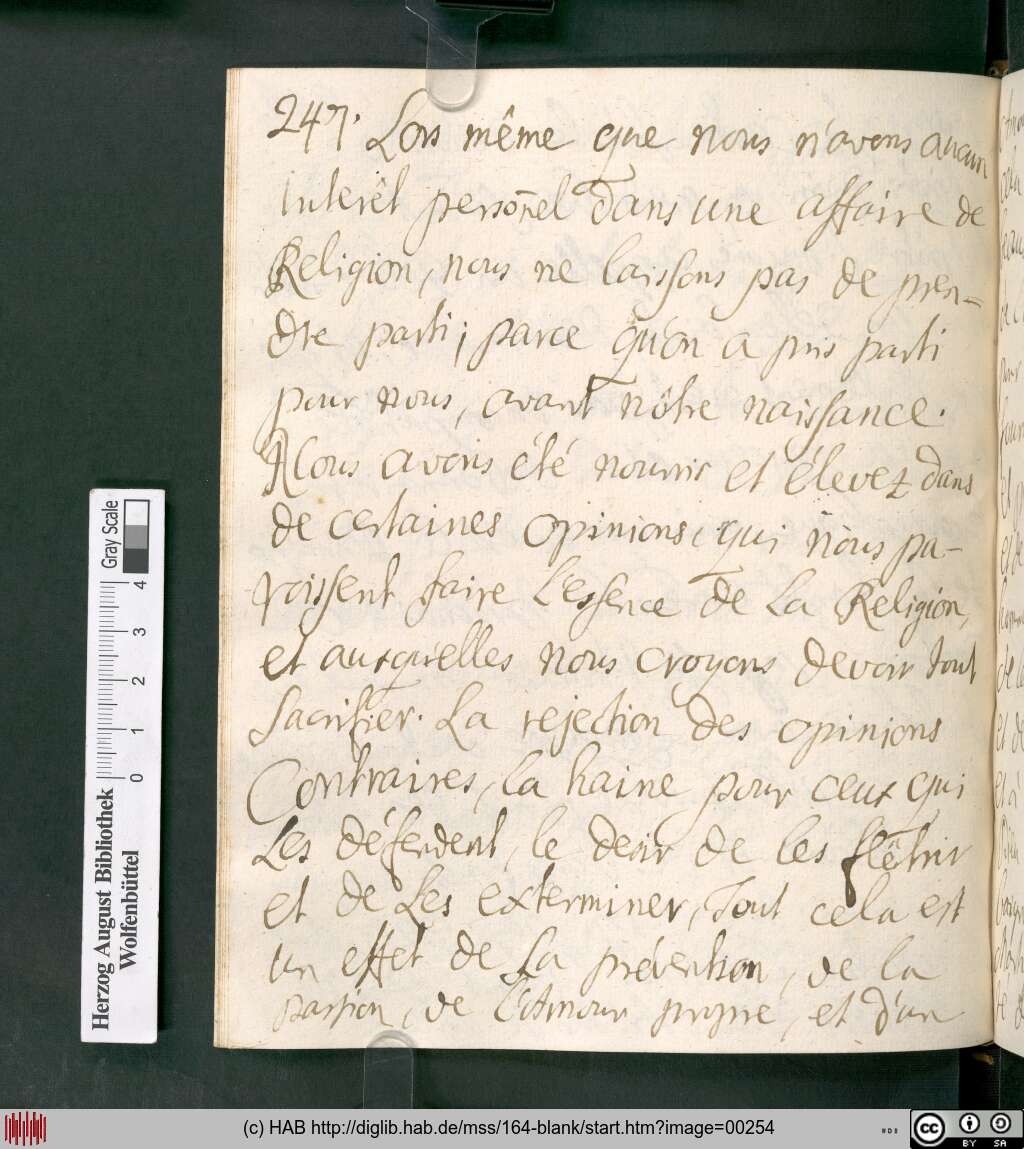 247. Lors même que nous n'avons aucun
interêt persoñel dans une affaire de
Religion, nous ne laissons pas de pren-
dre parti; parce qu'on a pris parti
pour nous, avant nôtre naissance.
Nous avons été nourris et élevez dans
de certaines opinions, qui nous pa-
roissent faire l'essence de la Religion,
et auxquelles nous croyons devoir tout
sacrifier. La rejection des opinions
Contraires, la haine pour ceux qui
les défendent, le desir de les flêtrir
et de les exterminer, tout cela est
un effet de la prévention, de la
passion, de l'Amour propre, et d'un
Gray Scale
4
3
2
1
0
Herzog August Bibliothek
Wolfenbüttel
(c) HAB http://diglib.hab.de/mss/164-blank/start.htm?image=00254
cc BY SA